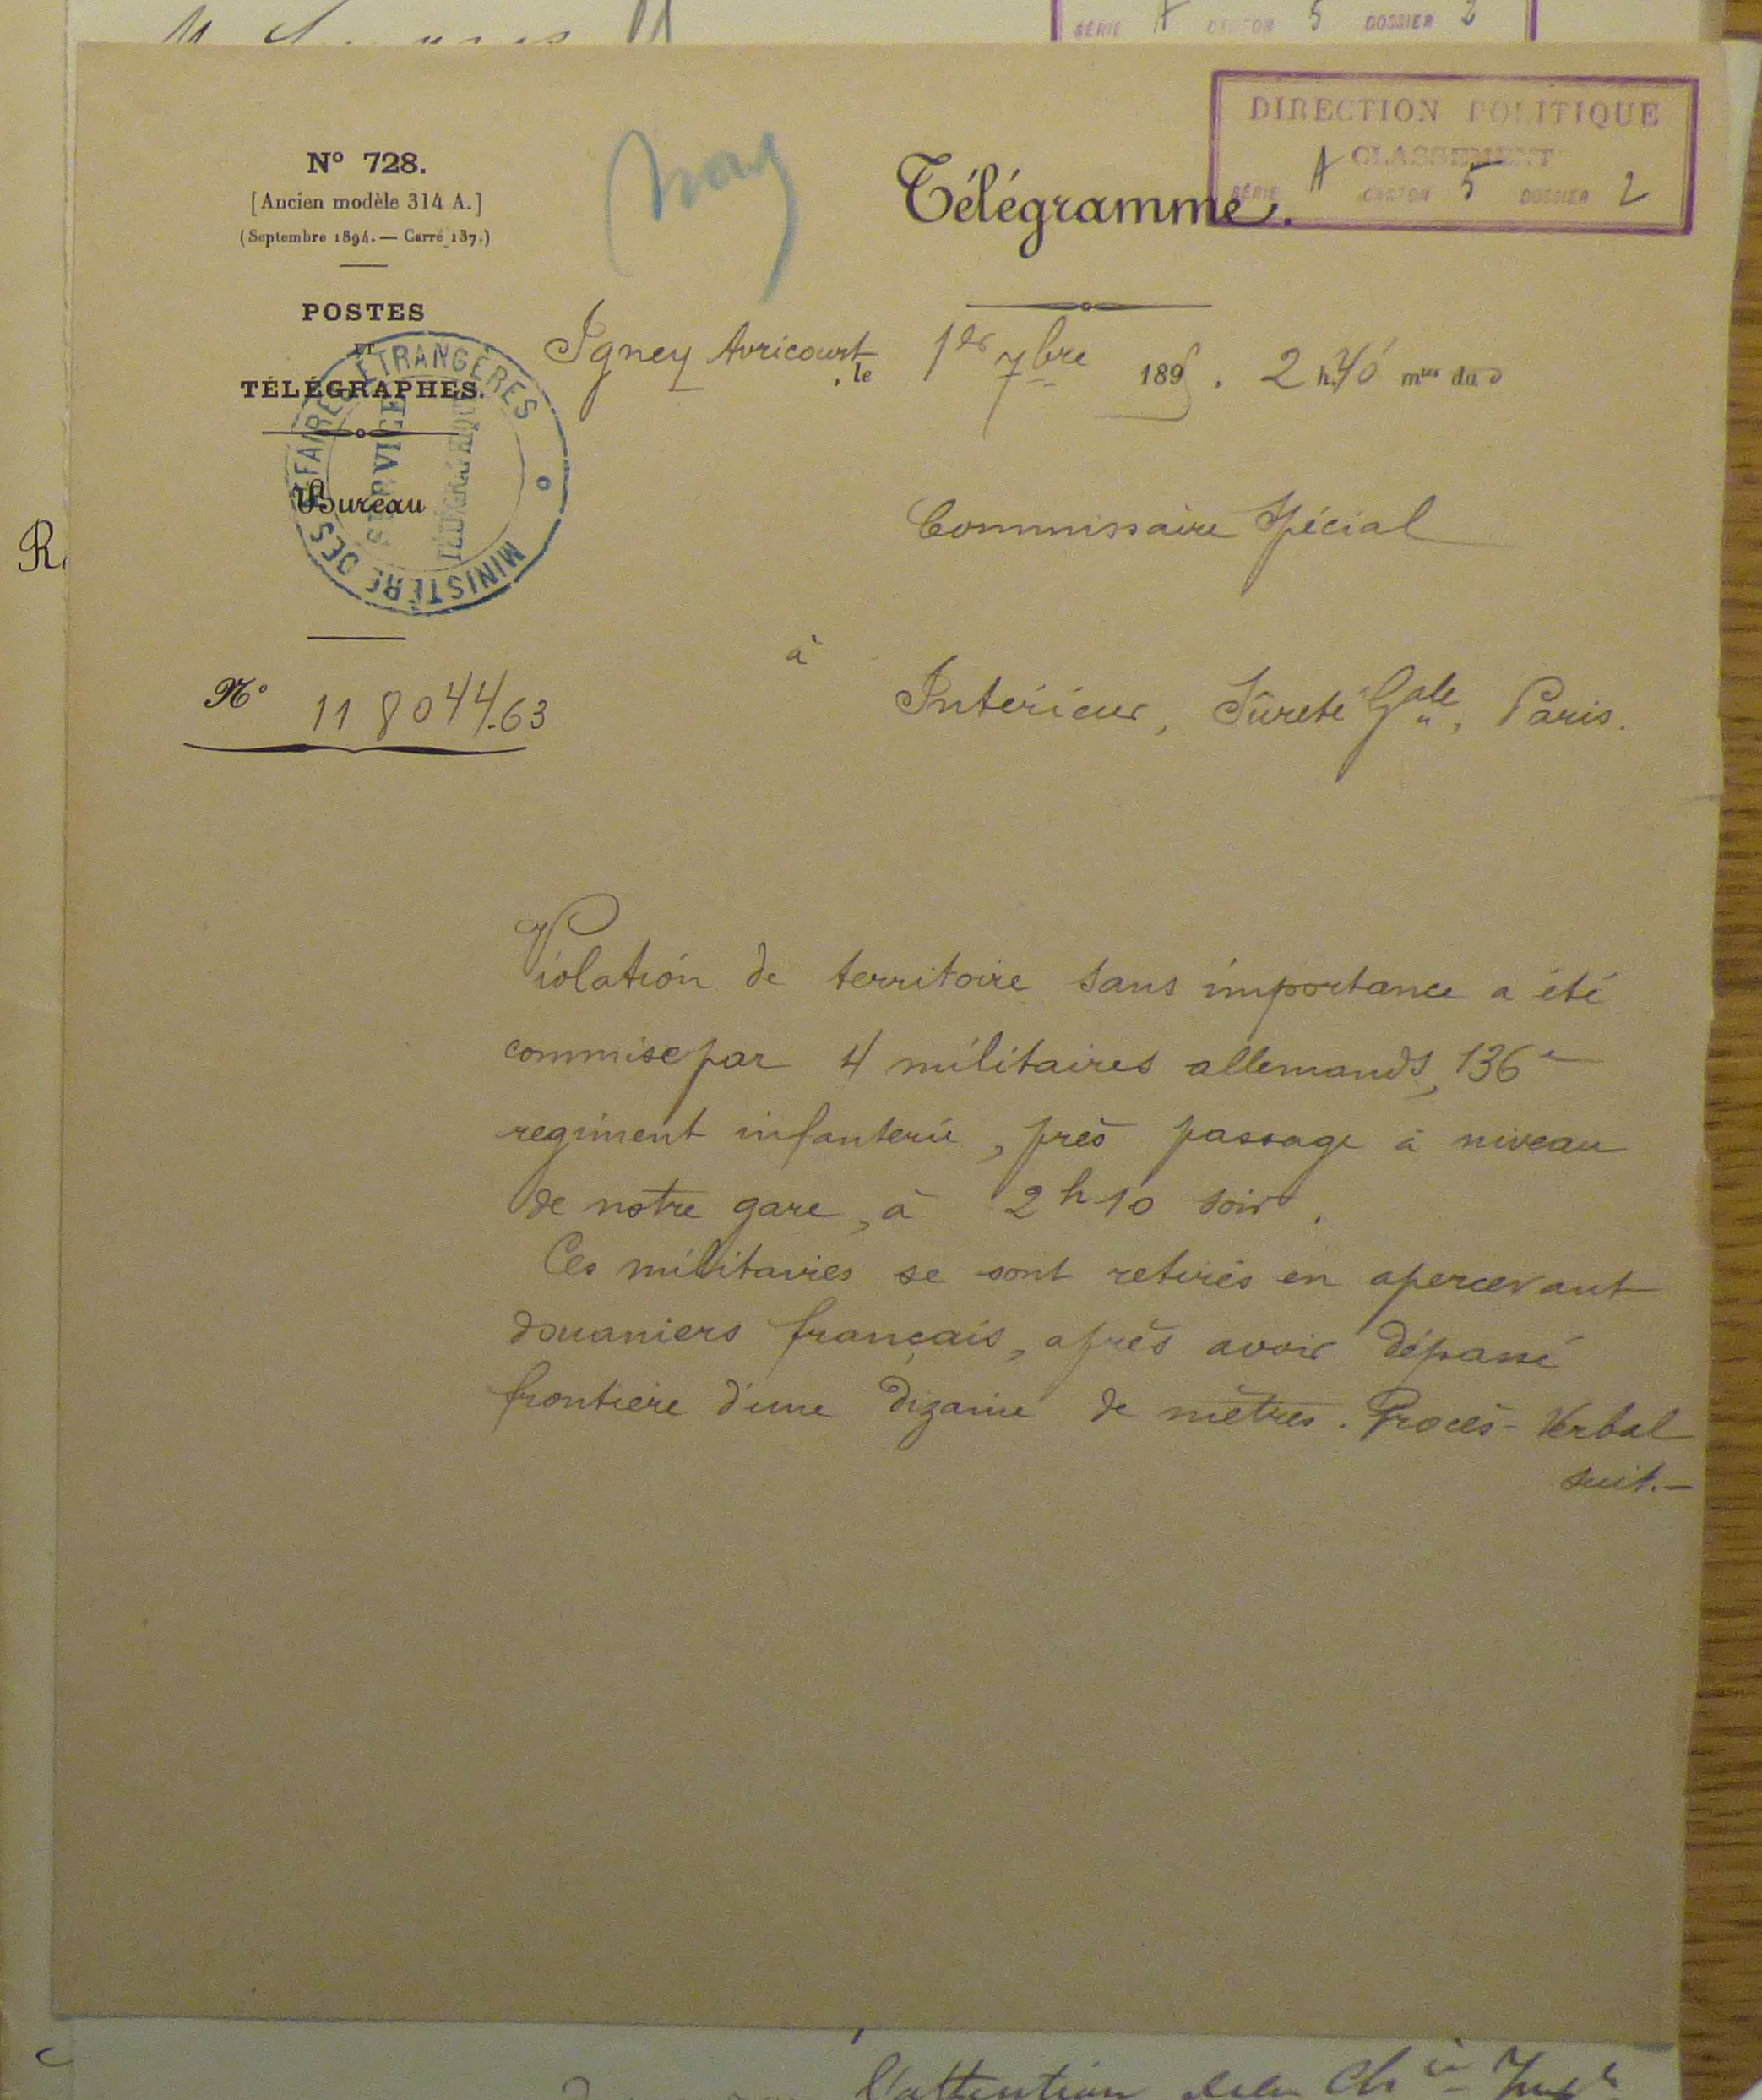 SÉRIE A CARTON 5 DOSSIER 2
DIRECTION POLITIQUE
CLASSEMENT
SÉRIE A CARTON 5 DOSSIER 2
Nº 728.
[Ancien modèle 314 A.]
(Septembre 1894. — Carré 137.)
Télégramme.
POSTES
ET
TÉLÉGRAPHES.
Bureau
MINISTÈRE DES AFFAIRES ÉTRANGÈRES
SERVICE
TÉLÉGRAPHIQUE
Igney Avricourt, le 1er 7bre 189 . 2 h. 40 mes du s
Commissaire Spécial
à
Intérieur, Sûreté Gale, Paris.
Nº 118044.63
Violation de territoire sans importance a été
commise par 4 militaires allemands, 136e
regiment infanterie, près passage à niveau
de notre gare, à 2h10 soir.
Ces militaires se sont retirés en apercevant
douaniers français, après avoir dépassé
frontière d'une dizaine de mètres. Procès-Verbal
suit.—
l'attention de la